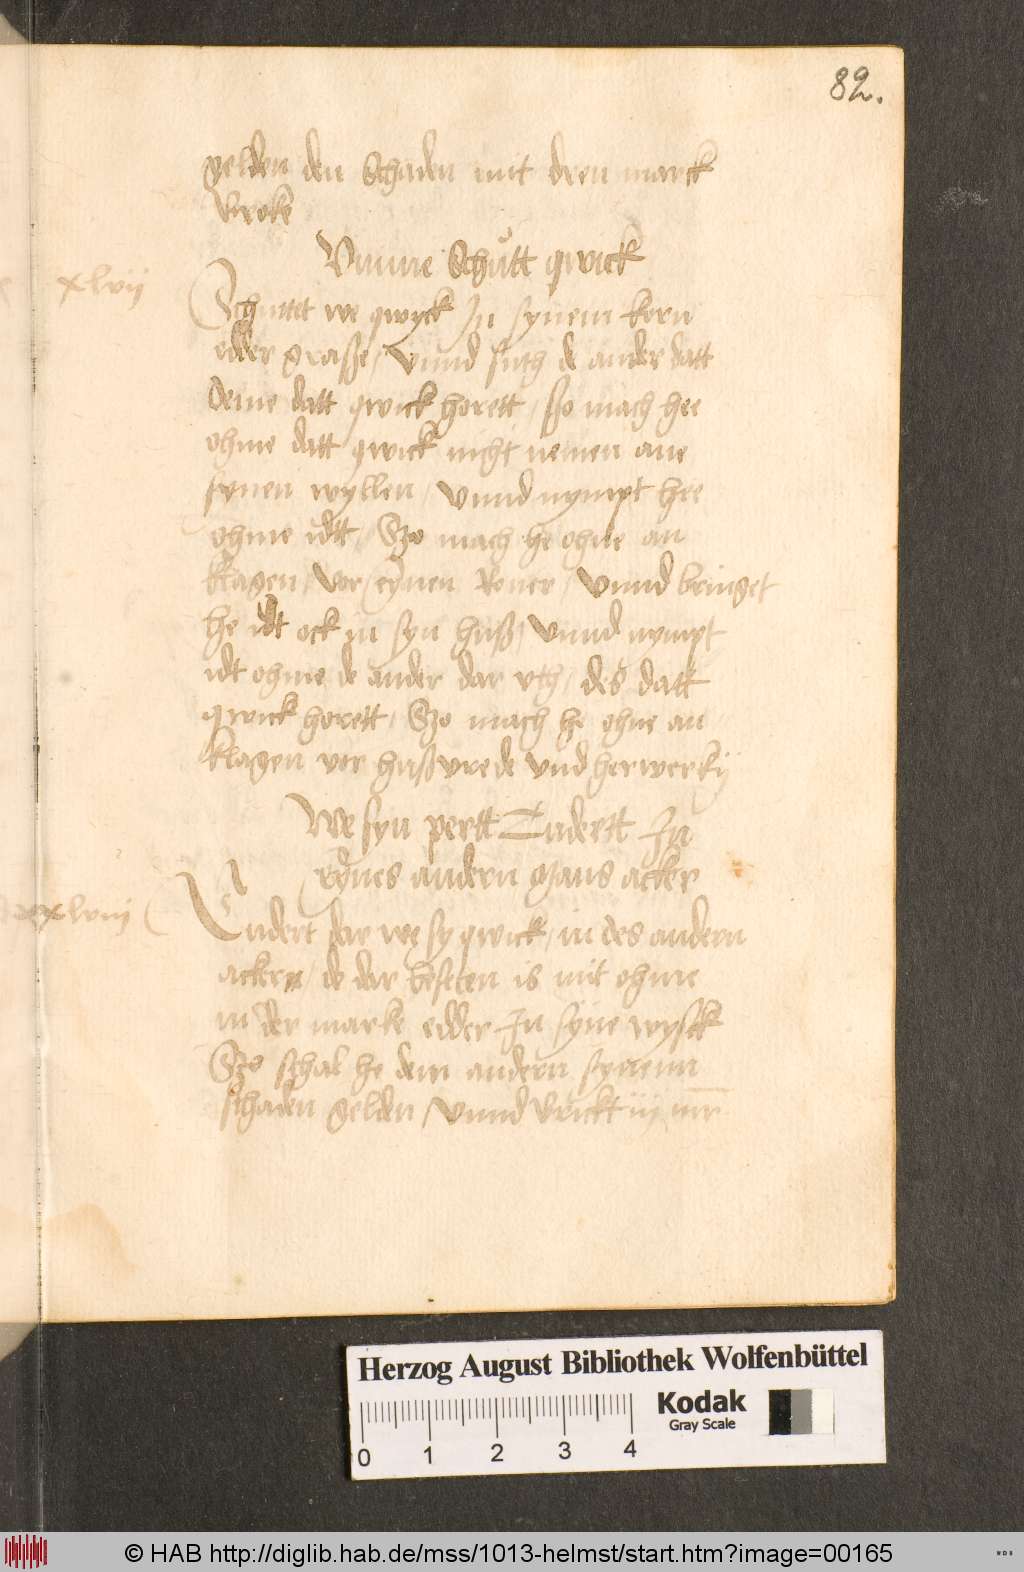 82.
gelden den Schaden mit dren marck
broke
Vmme Schutt qwick
xlvij
Schuttet we qwyck In synem korn
edder graße, vnnd sueth de ander datt
deme datt qwick horett, sso mach hee
ohme datt qwick nicht nemen ane
synen wyllen, vnnd nympt hee
ohme idtt, Szo mach he ohne an
klagen, vor eynen Rouer, vnnd bringet
he idt ock in syn huß, vnnd nympt
idt ohme de ander dar vth, des datt
qwick horett, Szo mach he ohne an
klagen vor hußvrede vnd herwerkij
We syn pertt Tudertt In
eynes andern mans acker
xlviij
Tudert dar we sy qwick, in des andern
ackern, de dar beseten is mit ohme
in der marke edder In syne wysck
Szo schal he dem andern synenn
schaden gelden, vnnd brickt iij mr
Herzog August Bibliothek Wolfenbüttel
Kodak
Gray Scale
0 1 2 3 4
© HAB http://diglib.hab.de/mss/1013-helmst/start.htm?image=00165